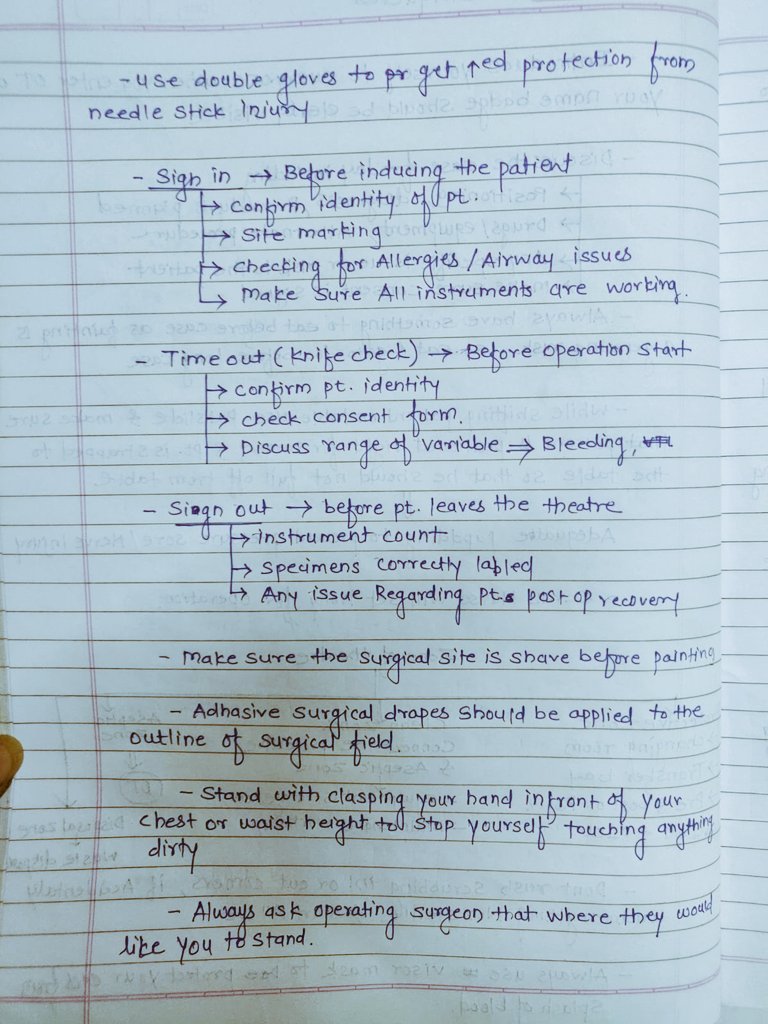 - use double gloves to get ↑ed protection from
needle stick injury
- Sign in → Before inducing the patient
↳ confirm identity of pt.
↳ Site marking
↳ checking for Allergies / Airway issues
↳ Make sure All instruments are working.
- Time out (knife check) → Before operation start
↳ confirm pt. identity
↳ check consent form.
↳ Discuss range of variable ⇒ Bleeding,
- Siogn out → before pt. leaves the theatre
↳ instrument count
↳ specimens correctly labled
↳ Any issue Regarding pt. post op recovery
- Make sure the surgical site is shave before painting
- Adhasive surgical drapes should be applied to the
outline of surgical field.
- Stand with clasping your hand infront of your
chest or waist height to stop yourself touching anything
dirty
- Always ask operating surgeon that where they would
like you to stand.